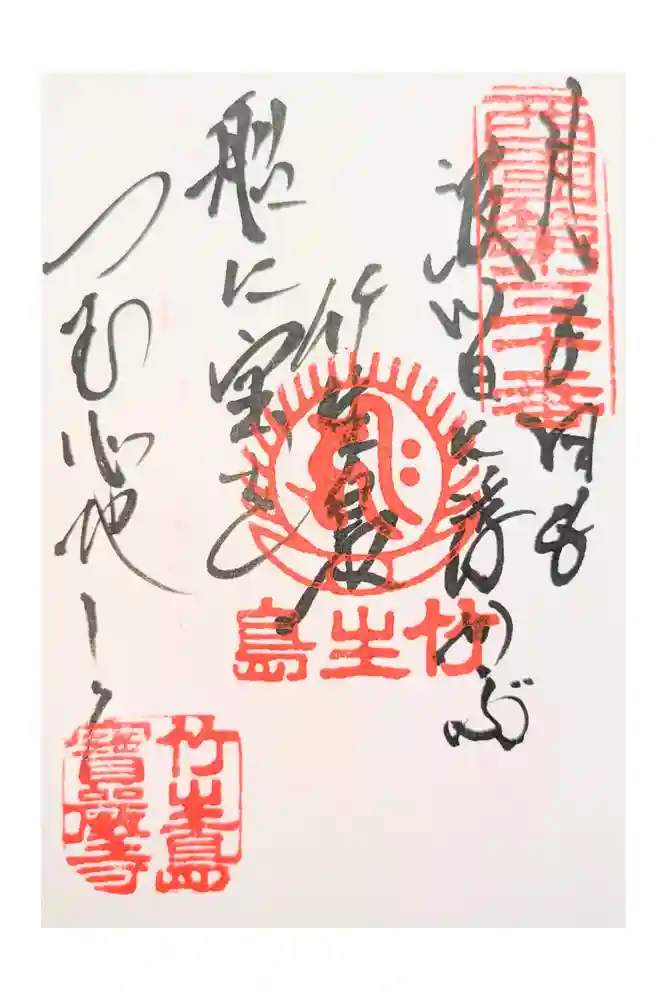 西國第三十番
月も日も
波間に浮かぶ
竹生島
船に宝を
つむ心地して
竹生島
竹生島
寶嚴寺